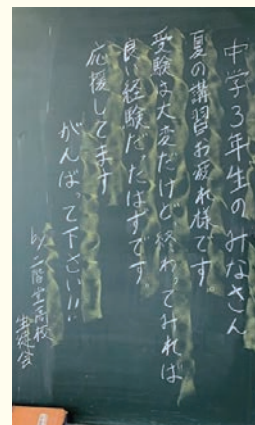 中学3年生のみなさん
夏の講習お疲れ様です。
受験は大変だけど終わってみれば
良い経験だったはずです。
応援してます
がんばって下さい!!
by 二階堂高校
生徒会